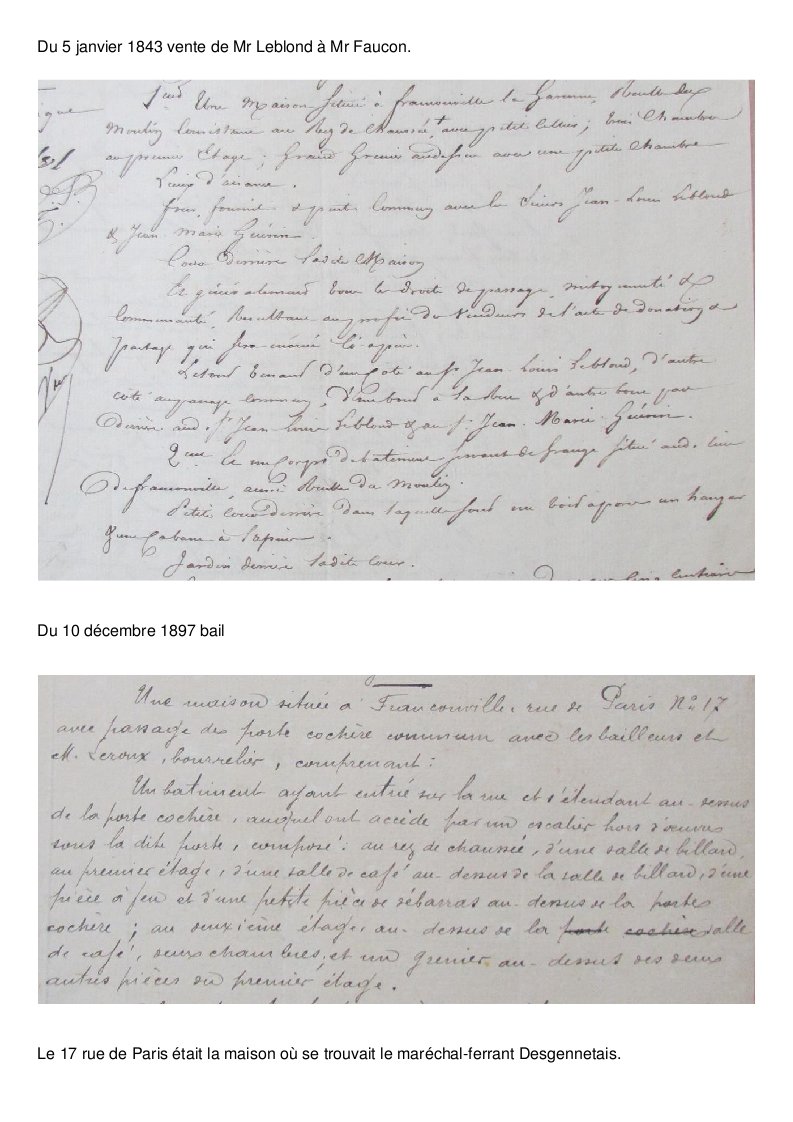 Du 5 janvier 1843 vente de Mr Leblond à Mr Faucon.
1ent Une Maison située à franconville la Garenne, Ruelle du
Moulin Consistant au Rez de Chaussée, avec petit cellier; Trois Chambres
au premier Etage; Grand Grenier audessus avec une petite Chambre
Lieux d'aisance.
four, fournil & puits Communs avec les Sieurs Jean-Louis Leblond
& Jean-Marie Guérin.
Cour derrière ladite Maison
Et généralement tous les droits de passage, mitoyenneté &
Communauté, Résultant au profit du Vendeur de l'acte de donation &
partage qui sera énoncé ci-après.
Le tout Tenant d'un coté au Sr Jean-Louis Leblond, d'autre
coté au passage commun, d'un bout à la Rue & d'autre bout par
derrière aud. Sr Jean-Louis Leblond & au Sr Jean-Marie Guérin.
2ent Et un Corps de batiment servant de Grange situé aud. lieu
de franconville, aussi Ruelle du Moulin.
Petite Cour derrière dans laquelle sont un hangar
& une Cabane à lapins.
Jardin derrière ladite Cour.
Du 10 décembre 1897 bail
Une maison située à Franconville, rue de Paris No 17
avec passage de porte cochère commun avec les bailleurs et
M. Leroux, bourrelier, comprenant :
Un batiment ayant entrée sur la rue et s'étendant au-dessus
de la porte cochère, auquel ont accède par un escalier hors d'œuvres
sous la dite porte, composé : au rez de chaussée, d'une salle de billard,
au premier étage, d'une salle de café au-dessus de la salle de billard, d'une
pièce à feu et d'une petite pièce de débarras au-dessus de la porte
cochère ; au deuxième étage, au-dessus de la porte cochère salle
de café, deux chambres, et un grenier au-dessus des deux
autres pièces du premier étage.
Le 17 rue de Paris était la maison où se trouvait le maréchal-ferrant Desgennetais.